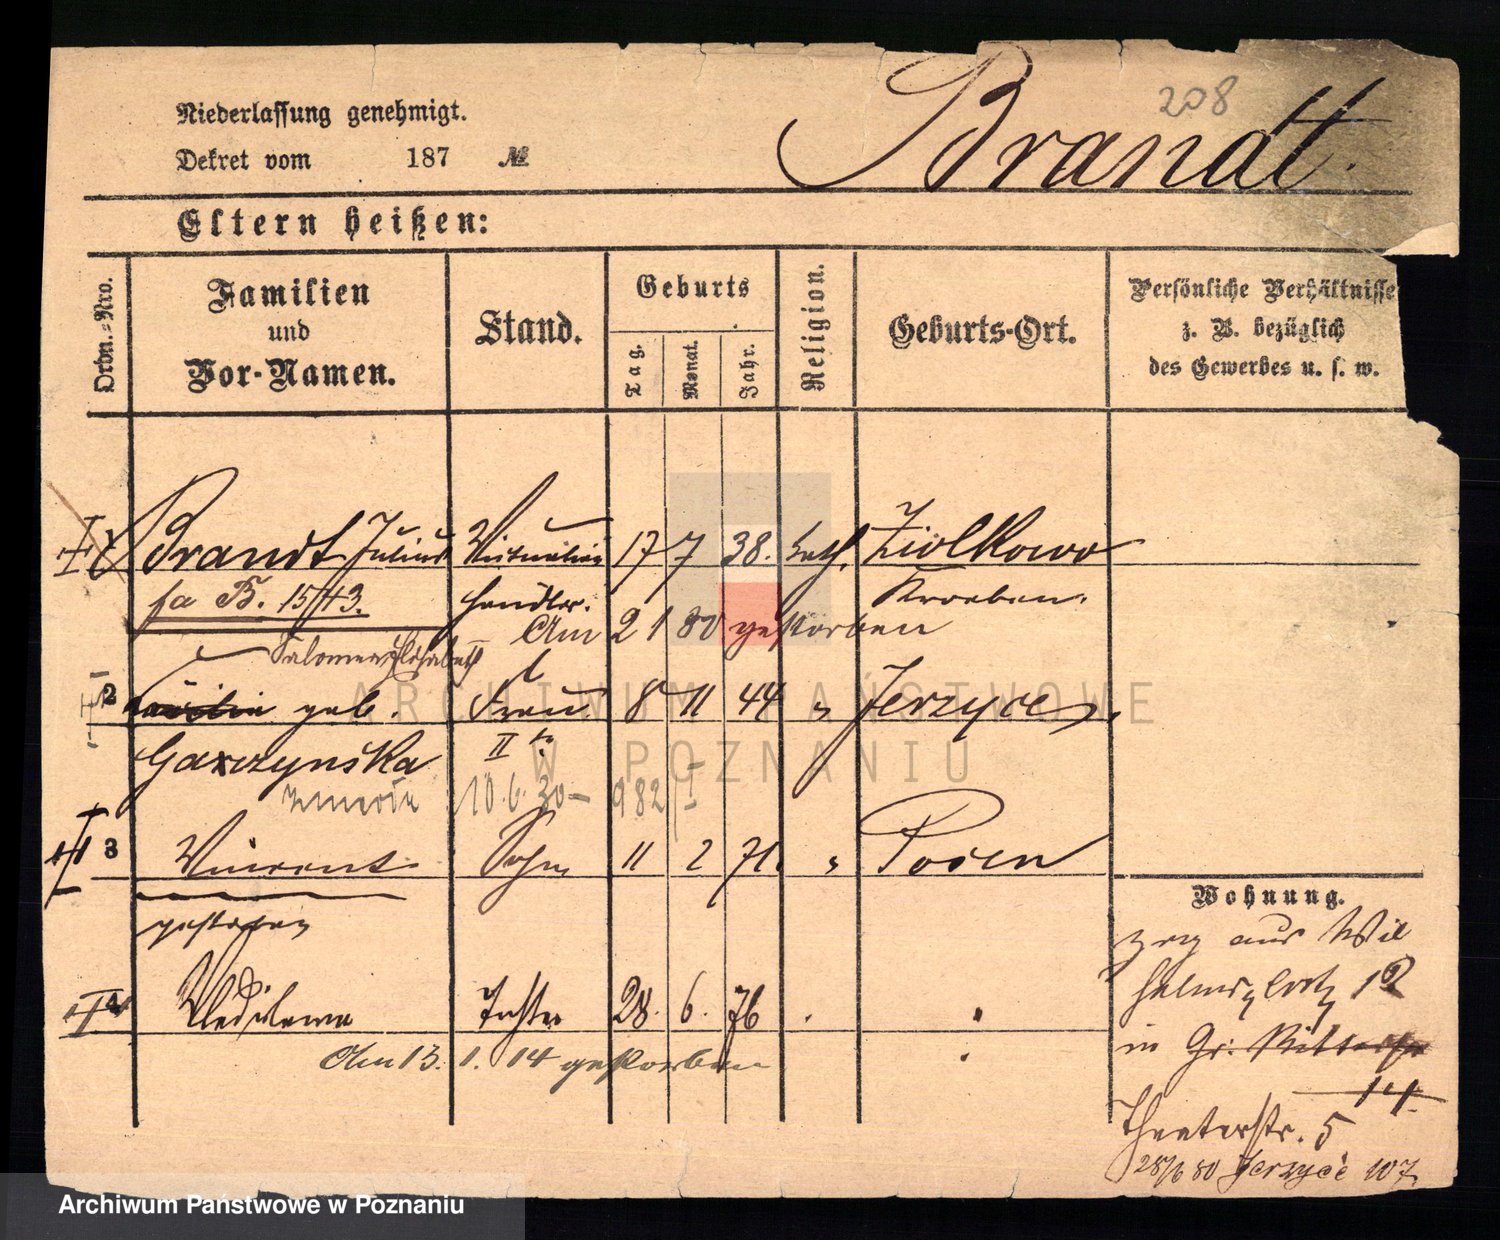 208
Brandt.
Niederlassung genehmigt.
Dekret vom 187 №
Eltern heißen:
Ordn.=Nro.
Familien
und
Vor-Namen.
Stand.
Geburts
Tag.
Monat.
Jahr.
Religion.
Geburts-Ort.
Persönliche Verhältnisse
z. B. bezüglich
des Gewerbes u. s. w.
Brandt Julius Victualien 17 7 38. kath. Ziolkowo
fa B. 15/43. händler. Kroeben.
Am 2 1 80 gestorben
Salomea Elisabeth
2 geb. Frau 8 11 44 " Jerzyce,
Garczynska II
10.6.30- 982/I
3 Vincent Sohn 11 2 71. " Posen
gestorben
4 Tochter 28. 6. 76
Am 13. 1. 14 gestorben
Wohnung.
zog aus Wil
helmsplatz 12
in Gr. Ritterstr
14
Theaterstr. 5
28/6 80 Jerzyce 107.
ARCHIWUM PAŃSTWOWE
W POZNANIU
Archiwum Państwowe w Poznaniu